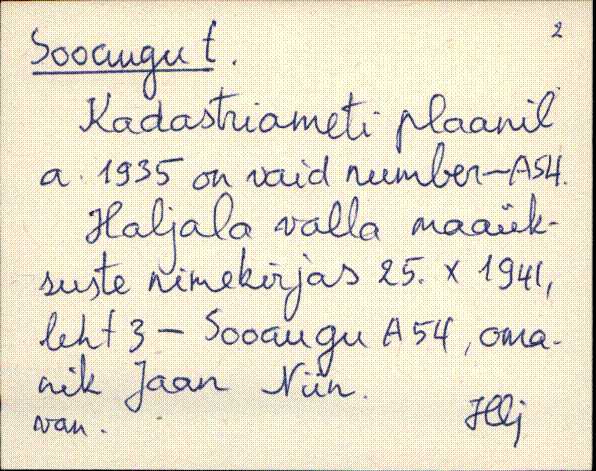 2
Sooaugu t.
Kadastriameti plaanil
a. 1935 on vaid number - A54.
Haljala valla maaük-
suste nimekirjas 25. X 1941,
leht 3 - Sooaugu A 54, oma-
nik Jaan Niin.
van. Hlj